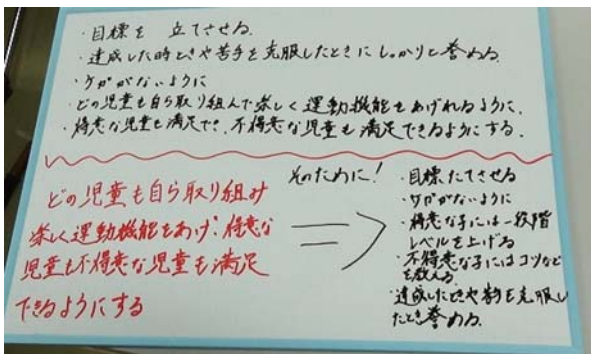 ・目標を 立てさせる
・達成した時ときや苦手を克服したときにしっかりと誉める
・ケガがないように
・どの児童も自ら取り組んで楽しく運動機能をあげれるように、
・得意な児童も満足でき、不得意な児童も満足できるようにする。
どの児童も自ら取り組み
楽しく運動機能をあげ、得意な
児童も不得意な児童も満足
できるようにする
そのために!
・目標たてさせる
・ケガがないように
・得意な子には一段階
レベルを上げる
・不得意な子にはコツなど
を教える
・達成したときや苦手を克服し
たとき誉める